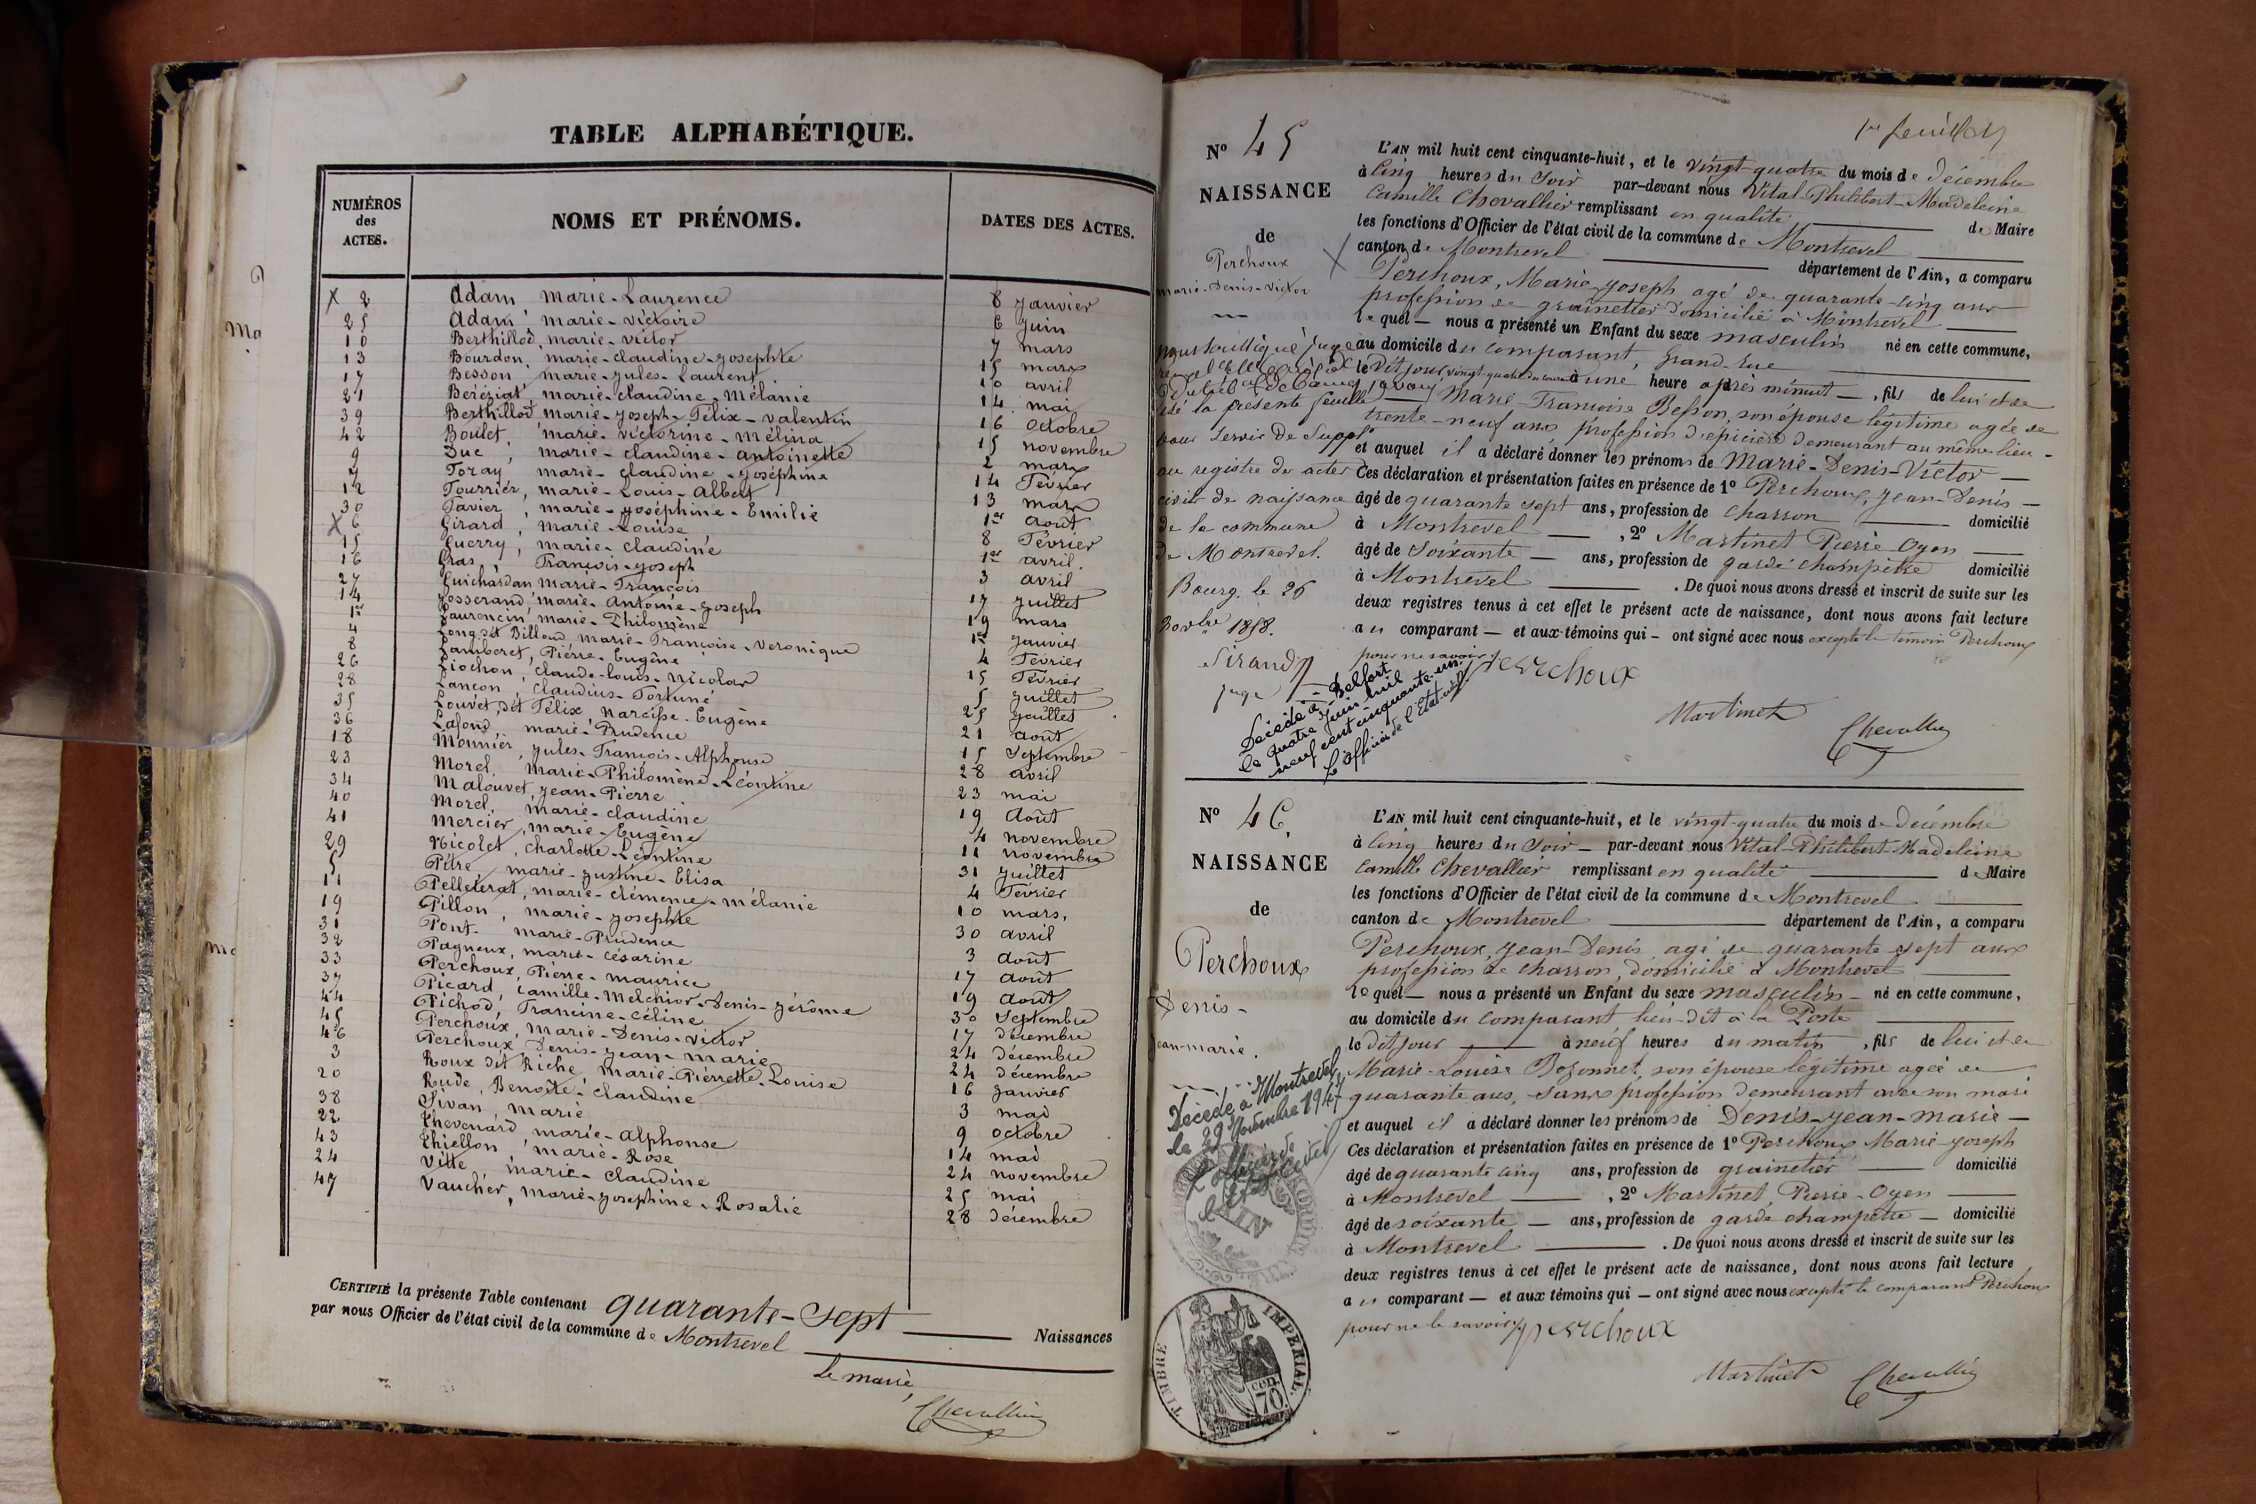 TABLE ALPHABÉTIQUE.
NUMÉROS des ACTES.
NOMS ET PRÉNOMS.
DATES DES ACTES.
X 2 Adam marie-Laurence 8 janvier
25 Adam marie-victoire 6 juin
10 Berthillod, marie-victor 7 mars
13 Bourdon, marie-claudine-josephte 15 mars
17 Besson marie-jules-Laurent 10 avril
21 Béréziat, marie-claudine-Mélanie 14 mai
39 Berthillod marie-joseph-Félix-valentin 16 octobre
42 Boulet, marie-victorine-mélina 15 novembre
9 Duc, marie-claudine-antoinette 2 mars
7 Foray marie-claudine-joséphine 14 Février
12 Fourrier, marie-Louis-albert 13 mars
30 Favier, marie-joséphine-Emilie 1er août
X 6 Girard, marie-Louise 8 Février
15 Guerry, marie-claudine 1er avril.
16 Gras, François-joseph 3 avril
27 Guichardan marie-François 17 juillet
14 Josserand, marie-antoine-joseph 19 mars
1er Laurencin, marie-Philomène 1er janvier
4 Long dit Billoud marie-Françoise-veronique 4 Février
8 Lamberet, Pierre-Eugène 15 Février
26 Liochon, claude-louis-nicolas 5 juillet
28 Lançon, claudius-Fortuné 25 juillet
35 Louvet, dit Félix narcisse-Eugène 21 août
36 Lafond, marie-Prudence 15 Septembre
18 Monnier, jules-François-Alphonse 28 avril
23 Morel, marie-Philomène-Léontine 23 mai
34 Malouvet, jean-Pierre 19 août
40 Morel, marie-claudine 4 novembre
41 Mercier, marie-Eugène 11 novembre
29 Nicolet, charlotte-Léontine 31 juillet
5 Pitre marie-justine-Elisa 4 Février
11 Pelleterat, marie-clémence-mélanie 10 mars,
19 Pillon, marie-josephte 30 avril
31 Pont marie-Prudence 3 août
32 Pagneux, marie-césarine 17 août
33 Perchoux, Pierre-maurice 19 août
37 Picard, camille-Melchior-Denis-jérôme 30 Septembre
44 Pichod, Francine-céline 17 décembre
45 Perchoux, marie-Denis-victor 24 décembre
46 Perchoux Denis-jean-marie 24 décembre
3 Roux dit Riche, marie-Pierrette-Louise 16 janvier
20 Rude, Benoîte-claudine 3 mai
38 Sivan, marie 9 octobre
22 Thevenard, marie-alphonse 14 mai
43 Thiellon, marie-Rose 24 novembre
24 Vitte, marie-claudine 25 mai
47 Vaucher, marie-josephine-Rosalie 28 décembre
CERTIFIÉ la présente Table contenant quarante-sept Naissances
par nous Officier de l'état civil de la commune de Montrevel
Le maire,
Chevallier
No 45
NAISSANCE
de
Perchoux
marie-Denis-victor
X
L'AN mil huit cent cinquante-huit, et le vingt-quatre du mois de décembre
à cinq heures du soir par-devant nous Vital-Philibert-Madeleine
Camille Chevallier remplissant en qualité de Maire
les fonctions d'Officier de l'état civil de la commune de Montrevel
canton de Montrevel département de l'Ain, a comparu
Perchoux, Marie-joseph agé de quarante-cinq ans
profession de grainetier domicilié à Montrevel
lequel nous a présenté un Enfant du sexe masculin né en cette commune,
au domicile du comparant, grand-rue
le dit jour vingt-quatre du courant à une heure après minuit, fils de lui et de
Marie-Françoise Besson, son épouse légitime agée de
trente-neuf ans profession d'épicière demeurant au même lieu
et auquel il a déclaré donner les prénoms de Marie-Denis-Victor
Ces déclaration et présentation faites en présence de 1º Perchoux, jean-Denis
âgé de quarante sept ans, profession de charron domicilié
à Montrevel, 2º Martinet Pierre Oyen
âgé de soixante ans, profession de garde champêtre domicilié
à Montrevel. De quoi nous avons dressé et inscrit de suite sur les
deux registres tenus à cet effet le présent acte de naissance, dont nous avons fait lecture
au comparant et aux témoins qui ont signé avec nous excepté le témoin Perchoux
pour ne savoir
perrchoux
Martinet
Chevallier
la présente feuille
pour servir de Suppt
au registre des actes
civils de naissance
de la commune
de Montrevel.
Bourg, le 26
novbre 1858.
Sirand
juge
Décédé à Belfort
le quatre juin mil
neuf cent cinquante-un.
L'officier de l'état civil
No 46
NAISSANCE
de
Perchoux
Denis-
jean-marie.
L'AN mil huit cent cinquante-huit, et le vingt-quatre du mois de décembre
à cinq heures du soir par-devant nous Vital-Philibert-Madeleine
Camille Chevallier remplissant en qualité de Maire
les fonctions d'Officier de l'état civil de la commune de Montrevel
canton de Montrevel département de l'Ain, a comparu
Perchoux, jean-Denis agé de quarante-sept ans
profession de charron, domicilié à Montrevel
lequel nous a présenté un Enfant du sexe masculin né en cette commune,
au domicile du comparant lieu-dit à la Poste
le dit jour à neuf heures du matin, fils de lui et de
Marie-Louise Bozonnet, son épouse légitime agée de
quarante ans, sans profession demeurant avec son mari
et auquel il a déclaré donner les prénoms de Denis-jean-marie
Ces déclaration et présentation faites en présence de 1º Perchoux Marie-joseph
âgé de quarante cinq ans, profession de grainetier domicilié
à Montrevel, 2º Martinet, Pierre-Oyen
âgé de soixante ans, profession de garde champêtre domicilié
à Montrevel. De quoi nous avons dressé et inscrit de suite sur les
deux registres tenus à cet effet le présent acte de naissance, dont nous avons fait lecture
au comparant et aux témoins qui ont signé avec nous excepté le comparant Perchoux
pour ne le savoir
perrchoux
Martinet
Chevallier
Décédé à Montrevel
le 29 Novembre 1947
L'officier de
l'état civil
AIN
TIMBRE IMPÉRIAL.
CEN. 70.